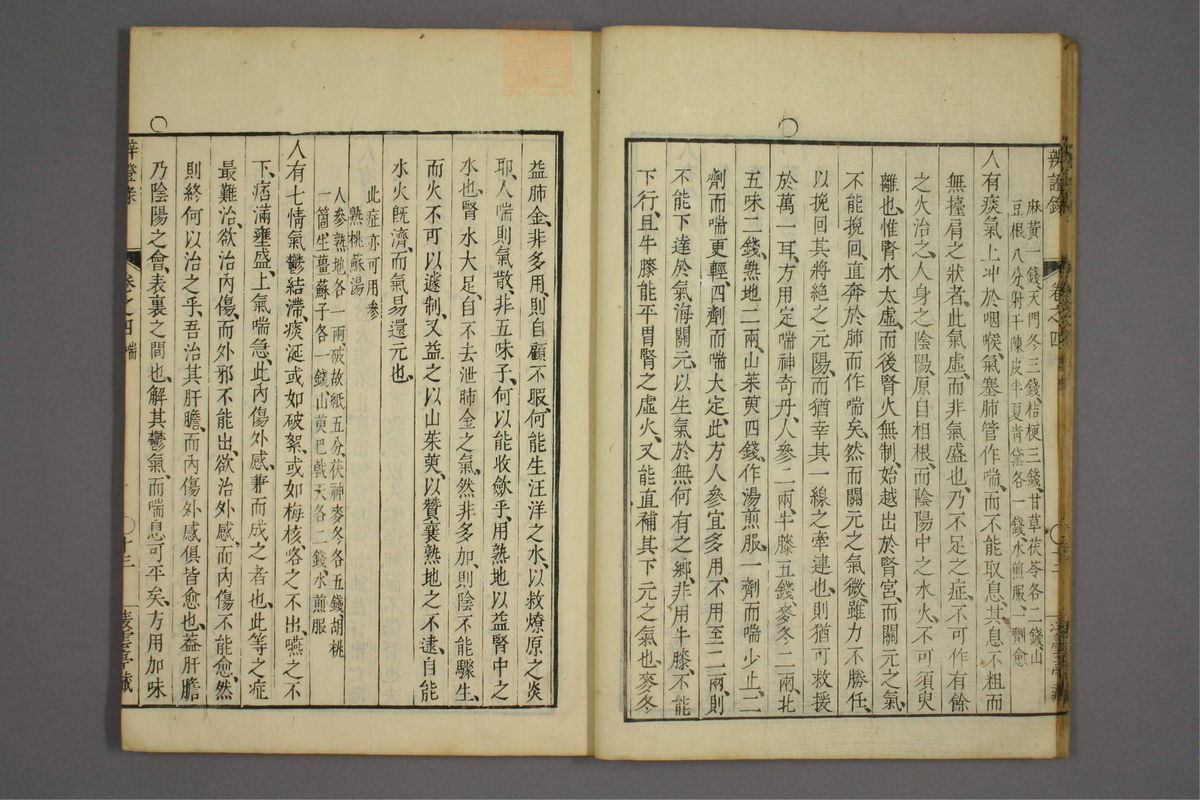 辨證錄
卷之四
麻黃一錢、天門冬三錢、桔梗三錢、甘草茯苓各二錢、山
豆根八分、射干陳皮半夏青黛各一錢、水煎服、一劑愈
人有痰氣上冲於咽喉、氣塞肺管作喘、而不能取息、其息不粗而
無擡肩之狀者、此氣虛、而非氣盛也、乃不足之症、不可作有餘
之火治之、人身之陰陽、原自相根、而陰陽中之水火、不可須臾
離也、惟腎水太虛、而後腎火無制、始越出於腎宮、而關元之氣、
不能挽回、直奔於肺而作喘矣、然而關元之氣微、雖力不勝任、
以挽回其將絕之元陽、而猶幸其一線之牽連也、則猶可救援
於萬一耳、方用定喘神奇丹、人參二兩、牛膝五錢、麥冬二兩、北
五味二錢、熟地二兩、山茱萸四錢、作湯煎服、一劑而喘少止、二
劑而喘更輕、四劑而喘大定、此方人參宜多用、不用至二兩、則
不能下達於氣海關元、以生氣於無何有之鄉、非用牛膝、不能
下行、且牛膝能平胃腎之虛火、又能直補其下元之氣也、麥冬
益肺金、非多用、則自顧不暇、何能生汪洋之水、以救燎原之炎
耶、人喘則氣散、非五味子、何以能收斂乎、用熟地以益腎中之
水也、腎水大足、自不去泄肺金之氣、然非多加、則陰不能驟生、
而火不可以遽制、又益之以山茱萸、以贊襄熟地之不逮、自能
水火旣濟、而氣易還元也、
此症亦可用參
熟桃蘇湯
人參熟地各一兩、破故紙五分、茯神麥冬各五錢、胡桃
一箇、生薑蘇子各一錢、山萸巴戟天各二錢、水煎服
人有七情氣鬱、結滯痰涎、或如破絮、或如梅核、咯之不出、嚥之不
下、痞滿壅盛、上氣喘急、此內傷外感、兼而成之者也、此等之症
最難治、欲治內傷、而外邪不能出、欲治外感、而內傷不能愈、然
則終何以治之乎、吾治其肝膽、而內傷外感俱皆愈也、蓋肝膽
乃陰陽之會、表裏之間也、解其鬱氣、而喘息可平矣、方用加味
卷之四 喘
十三